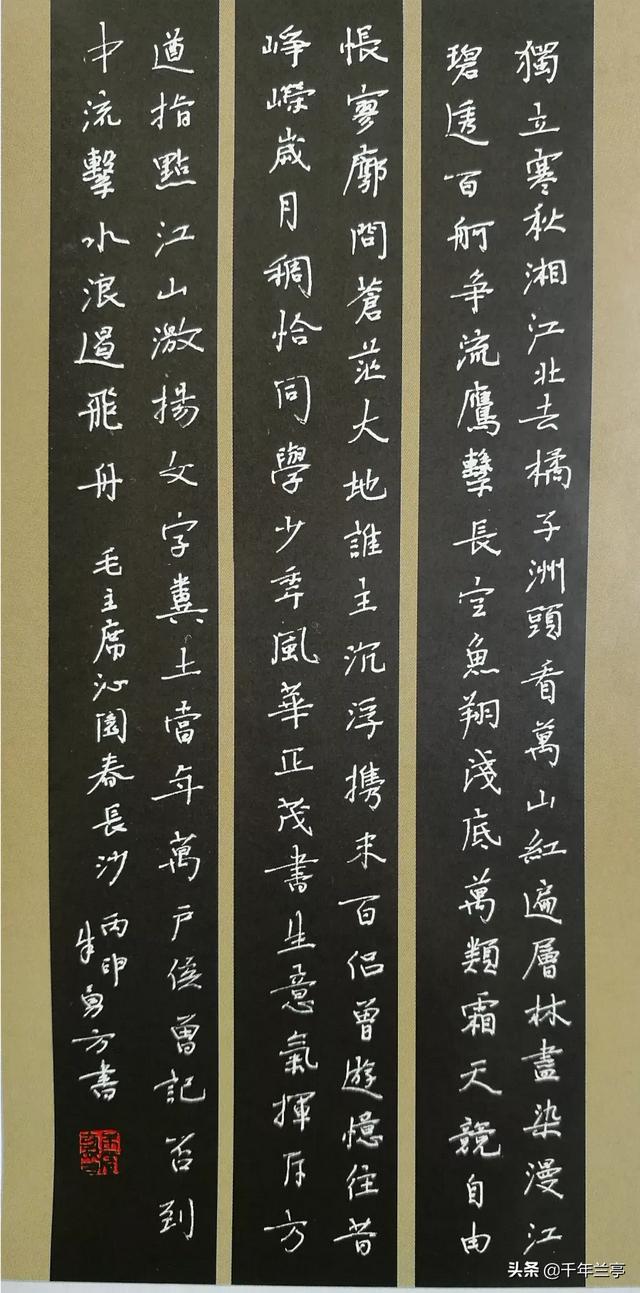 獨立寒秋湘江北去橘子洲頭看萬山紅遍層林盡染漫江
碧透百舸争流鷹擊長空魚翔淺底萬類霜天競自由
悵寥廓問蒼茫大地誰主沉浮携来百侣曾遊憶往昔
崢嶸歲月稠恰同學少年風華正茂書生意氣揮斥方
遒指點江山激揚文字糞土當年萬户侯曾記否到
中流擊水浪遏飛舟
毛主席沁園春長沙
丙
朱勇方書
头条 @千年兰亭